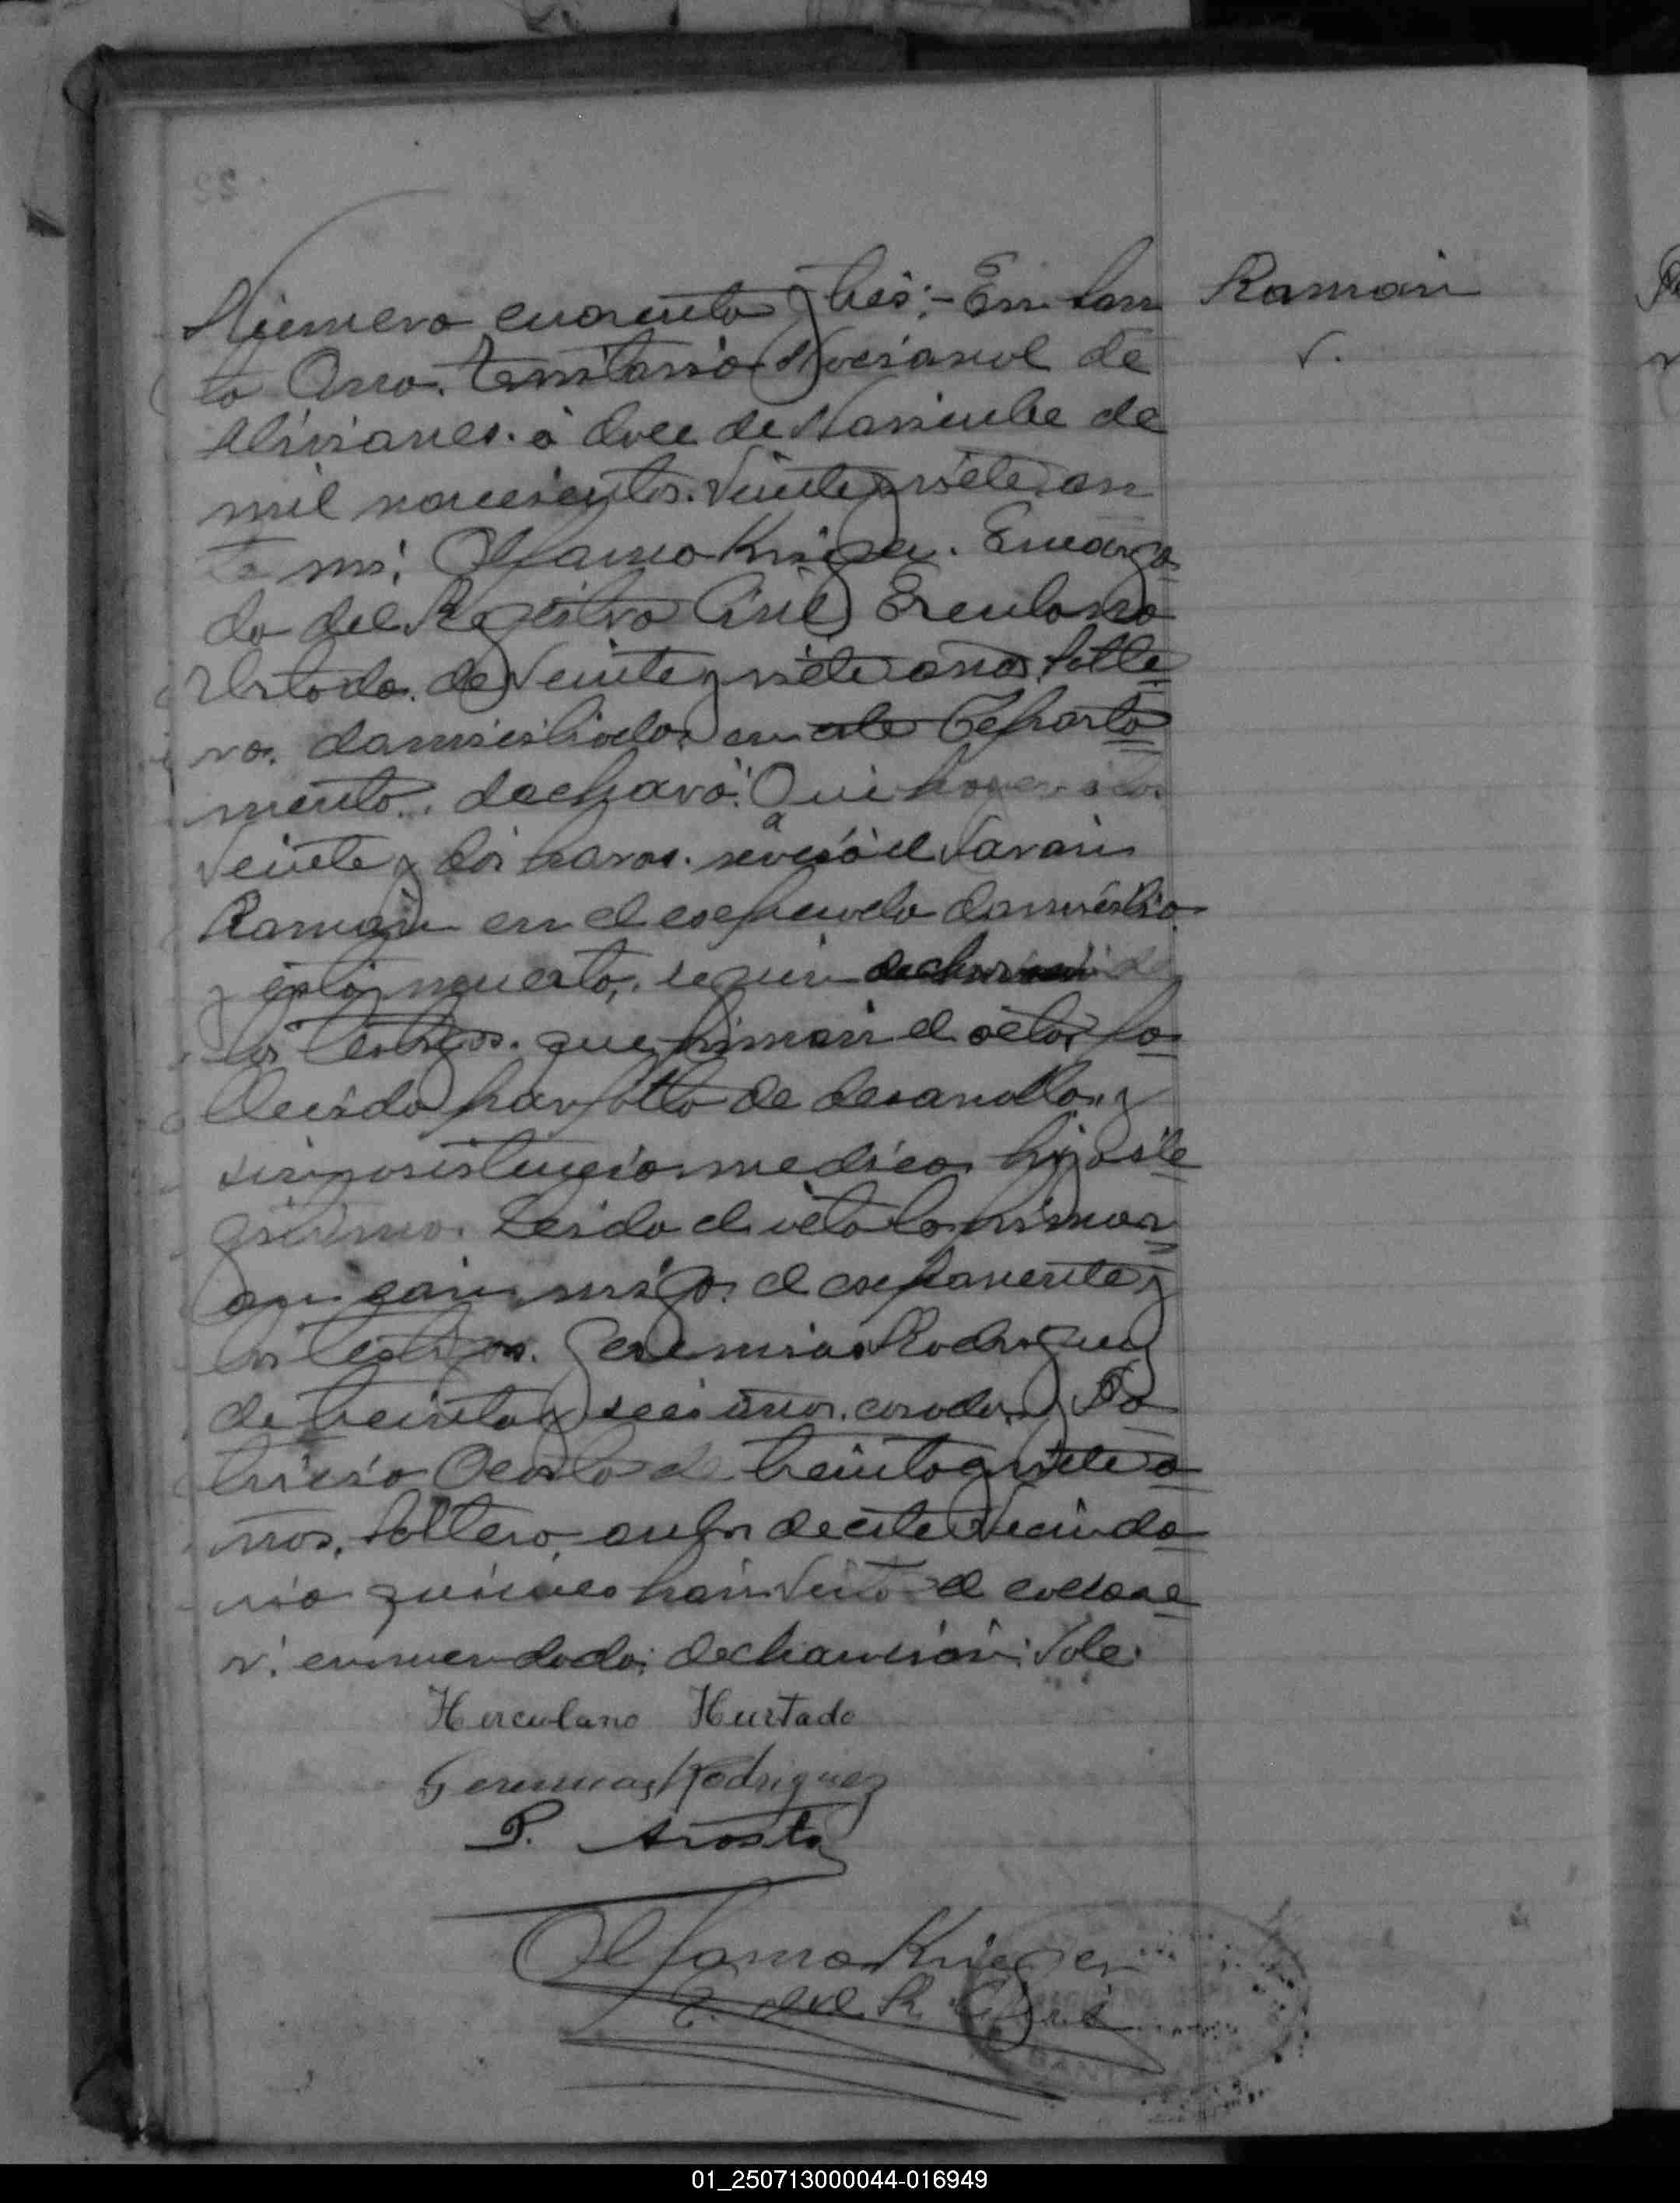 Ramón
Número cuarenta y tres:- En San
ta Ana. territorio Nacional de
Misiones. á doce de Noviembre de
mil novecientos. Veinte y siete. an
te mi: Olfama Krieger. Encarga
do del Registro Civil Erculano
Urtado. de Veinte y siete años. solte
ro. domisiliado. en este Departa
mento. declaró: Que hoy a las
Veinte y dos horas. nació el Varón
Ramón en el espresado domisilio
y está muerto, según declaración de
los testigos. que firman el acta, fa
llecido por falta de desarrollo y
sin asistencia medica. hijo ile
gitimo. Leida el acta la firmar
on conmigo. el esponente y
los testigos. Geremias Rodriguez
de treinta y seis años. casado. y Pa
tricio Acosta de treinta y siete a
ños. soltero, anbos de este Vecinda
rio quienes han visto el cadave
r. enmendado: declaración: Vale.
Herculano Hurtado
Geremias Rodriguez
P. Acosta
Olfama Krieger
E. del R. Civil
SANTA ANA
01_250713000044-016949